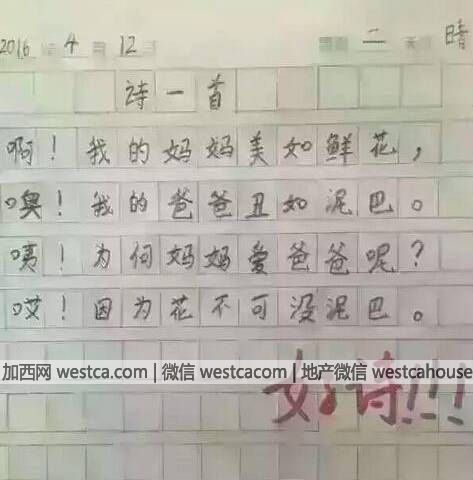 2016 年 4 月 12 日 星期 二 天气 晴
诗一首
啊！我的妈妈美如鲜花，
噢！我的爸爸丑如泥巴。
咦！为何妈妈爱爸爸呢？
哎！因为花不可没泥巴。
加西网 westca.com | 微信 westcacom | 地产微信 westcahouse
好诗!!!